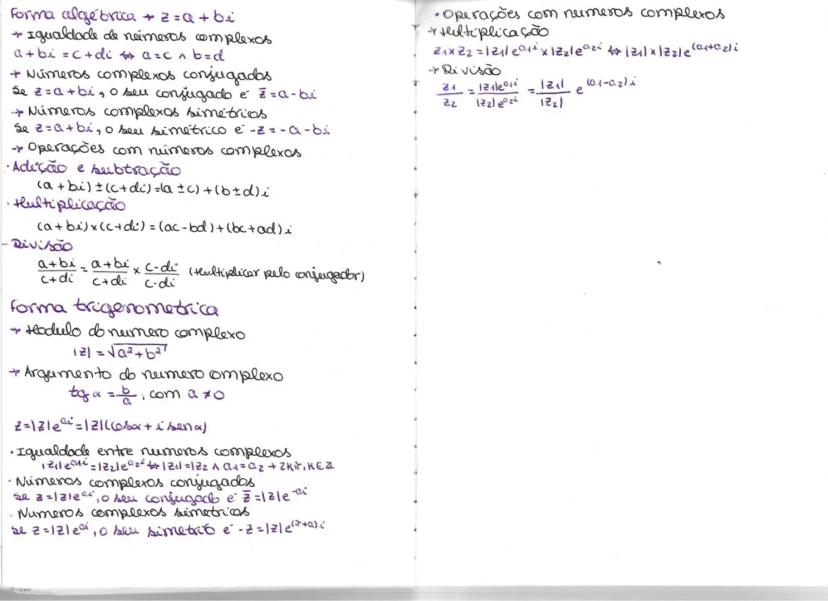 Forma algébrica → z = a + bi
→ Igualdade de números complexos
a + bi = c + di ⇔ a = c ∧ b = d
→ Números complexos conjugados
Se z = a + bi, o seu conjugado é z̄ = a - bi
→ Números complexos simétricos
Se z = a + bi, o seu simétrico é -z = -a - bi
→ Operações com números complexos
· Adição e subtração
(a + bi) ± (c + di) = (a ± c) + (b ± d)i
· Multiplicação
(a + bi) × (c + di) = (ac - bd) + (bc + ad)i
- Divisão
a+bi/c+di = a+bi/c+di × c-di/c-di (Multiplicar pelo conjugador)
Forma trigonometrica
→ Modulo do numero complexo
|z| = √a² + b²
→ Argumento do numero complexo
tg α = b/a, com a ≠ 0
z = |z|e^αi = |z|(cos α + i sen α)
· Igualdade entre numeros complexos
|z1|e^α1i = |z2|e^α2i ⇔ |z1| = |z2 ∧ α1 = α2 + 2kπ, k ∈ Z
· Números complexos conjugados
se z = |z|e^αi, o seu conjugado é z̄ = |z|e^-αi
· Numeros complexos simetricos
se z = |z|e^αi, o seu simetrico é -z = |z|e^(π+α)i
· Operações com numeros complexos
→ Multiplicação
z1 × z2 = |z1|e^α1i × |z2|e^α2i ⇔ |z1| × |z2|e^(α1+α2)i
→ Divisão
z1/z2 = |z1|e^α1i/|z2|e^α2i = |z1|/|z2| e^(α1-α2)i